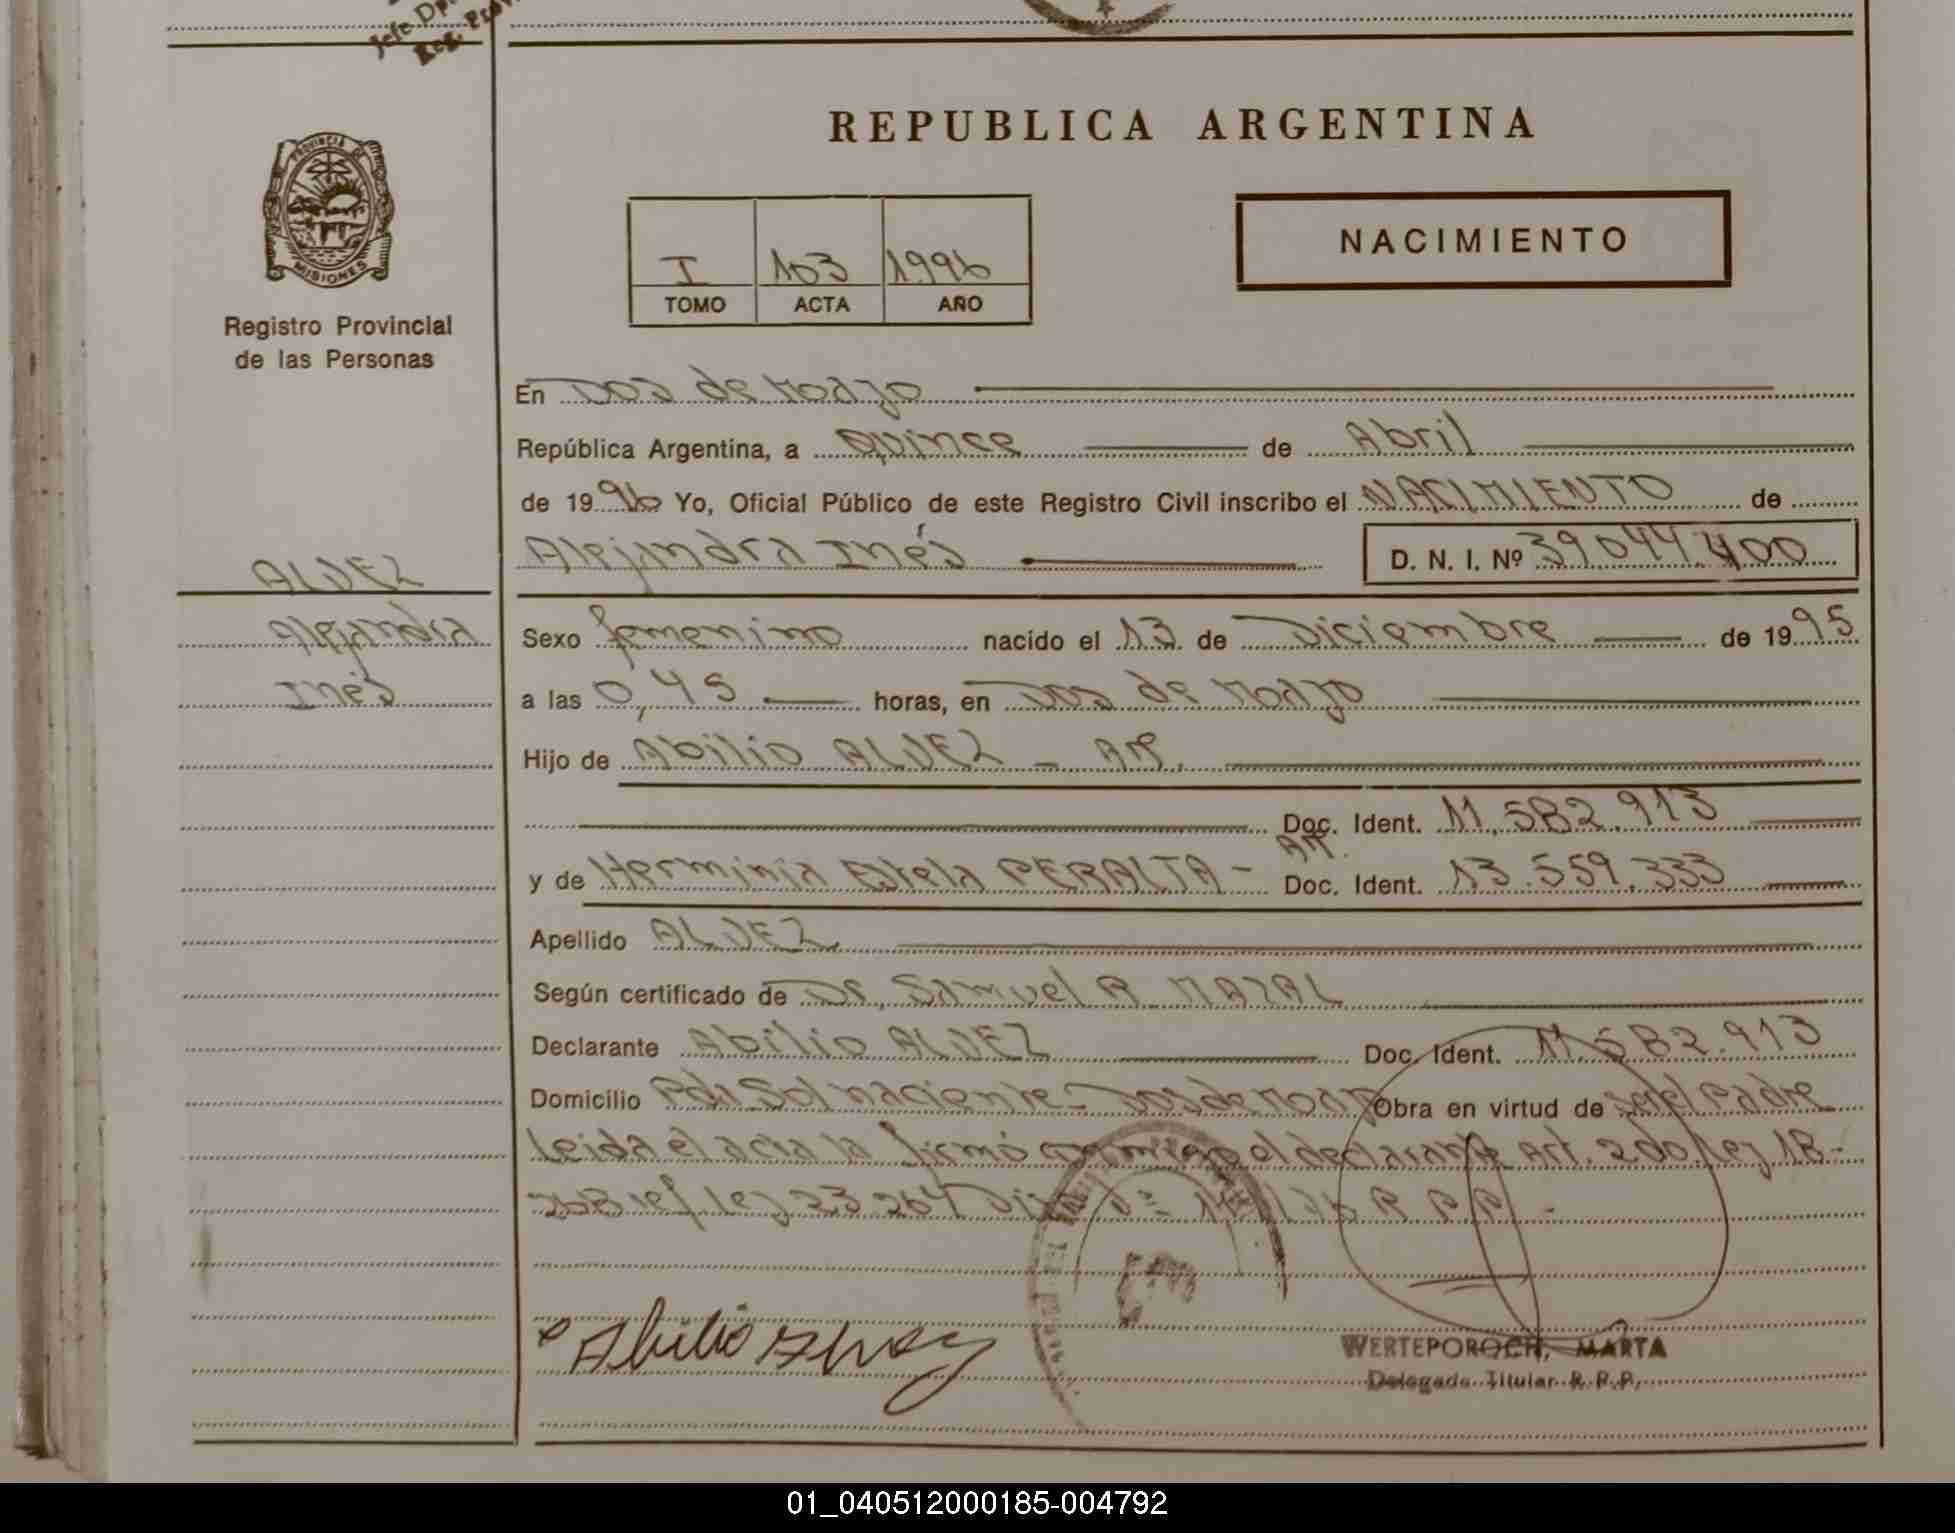 Jefe Dp
Reg. Prov
REPUBLICA ARGENTINA
PROVINCIA DE
MISIONES
Registro Provincial
de las Personas
I 103 1996
TOMO ACTA AÑO
NACIMIENTO
En Dos de Mayo
República Argentina, a Quince de Abril
de 1996 Yo, Oficial Público de este Registro Civil inscribo el NACIMIENTO de
Alejandra Inés D. N. I. Nº 39.044.400
ALVEZ
Alejandra
Inés
Sexo femenino nacido el 13 de Diciembre de 1995
a las 0,45 horas, en Dos de Mayo
Hijo de Abilio ALVEZ - AR.
Doc. Ident. 11.582.913
y de Herminia Estela PERALTA - AR. Doc. Ident. 13.559.333
Apellido ALVEZ
Según certificado de Dr. Samuel A. MAZAL
Declarante Abilio ALVEZ Doc. Ident. 11.582.913
Domicilio Pdi Sol naciente - Dos de Mayo Obra en virtud de ser el Padre
Leida el acta la firmó conmigo el declarante Art. 2do Ley 18-
268 ref Ley 23264 R.P.P. -
Abilio Alvez
WERTEPOROCH, MARTA
Delegada Titular R.P.P.
01_040512000185-004792